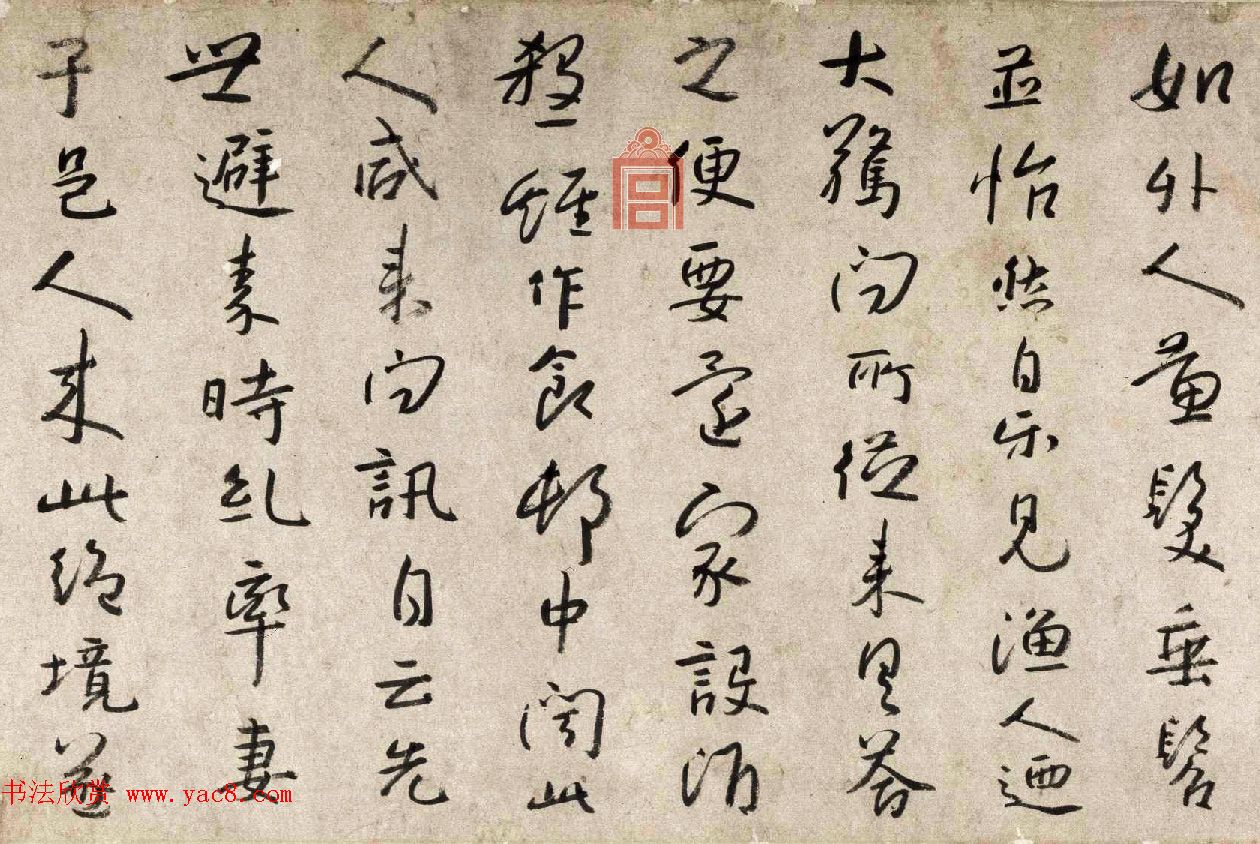 如外人黃髮垂髫
並怡然自樂見漁人迺
大驚問所從来具答
之便要還家設酒
殺雞作食邨中聞此
人咸来問訊自云先
世避秦時乱率妻
子邑人来此絕境遂
书法欣赏 www.yac8.com